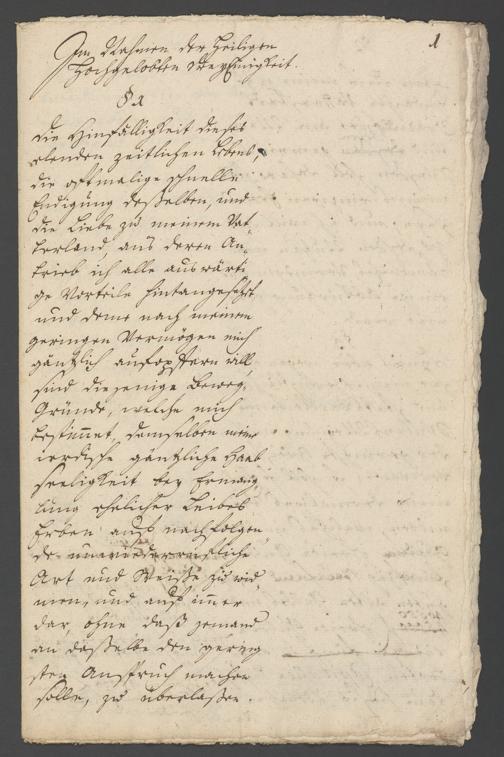 1
Im Nahmen der Heiligen
Hochgelobten Dreyeinigkeit.
§ 1
Die Hinfälligkeit dieses
elenden zeitlichen Lebens,
die oftmalige schnelle
Endigung desselben, und
die Liebe zu meinem Vat-
terland, aus deren An-
trieb ich alle auswärti-
ge Vorteile hintangesetzt,
und deme nach meinem
geringen Vermögen mich
gäntzlich aufopffern will,
sind diejenige Beweg-
Gründe, welche mich
bestimmet, demselben meine
irrdische gäntzliche Haab-
seeligkeit bey Ermang-
lung ehelicher Leibes
Erben auf nachfolgen-
de unwiederrufliche
Art und Weiße zu wid-
men, und auf immer
dar ohne daß jemand
an dasselbe den gering-
sten Anspruch machen
solle, zu überlaßen.